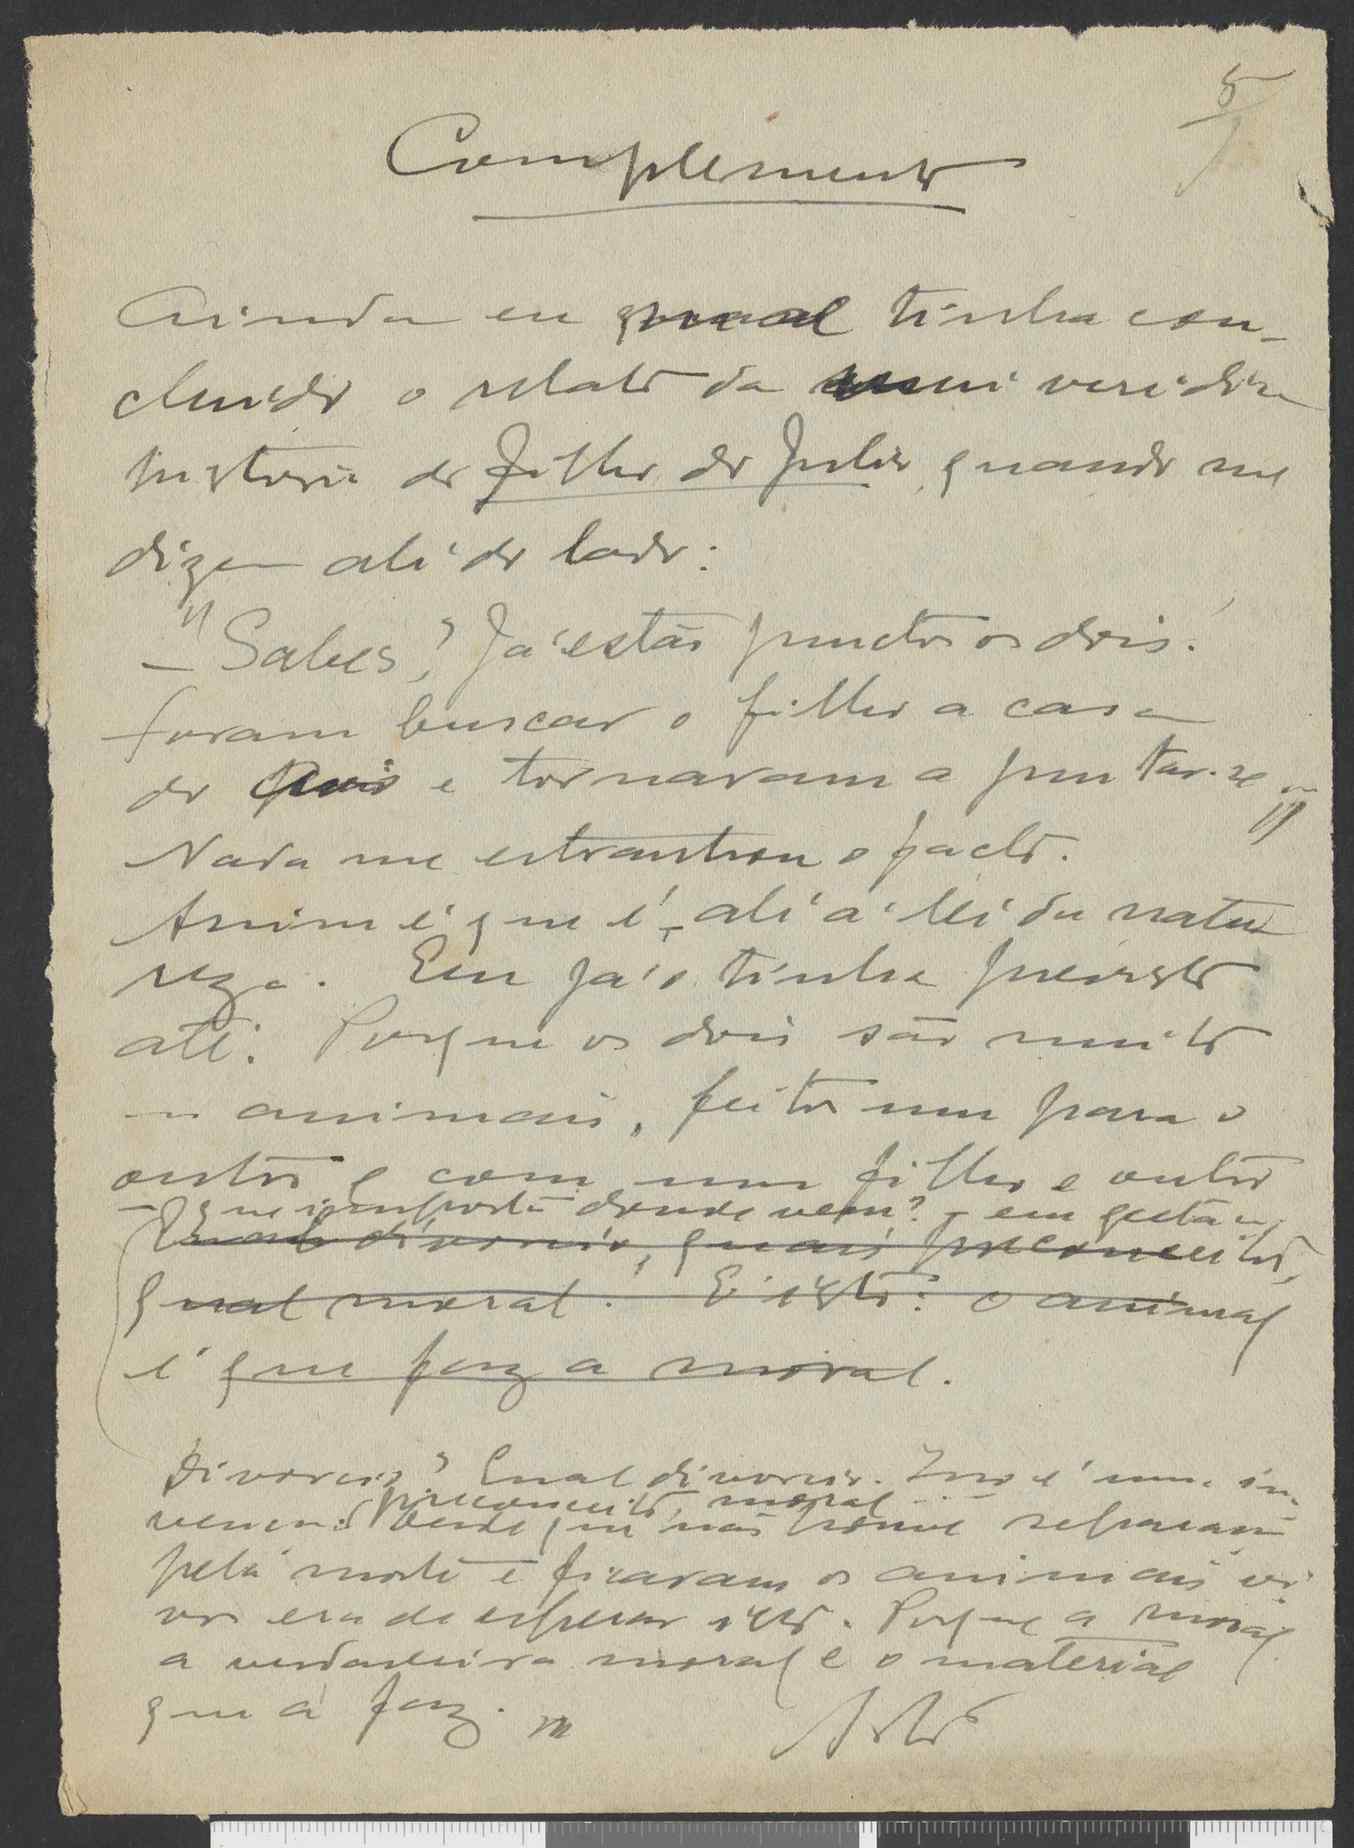 5
Complemento
Ainda eu mal tinha con-
cluido o relato da veridica
historia do filho do Julio, quando me
dizem ali do lado:
— "Sabes? Já estão junctos os dois.
foram buscar o filho a casa
do e tornaram a juntar-se"
Nada me estranhou o facto.
Assim é que é, ali a lei da natu
reza. Eu já o tinha previsto
até. Porque os dois são muito
animais, feitos um para o
outro e com um filho e outro
— que importa donde vem? — em gestão
Qual divorcio, quais preconceitos,
qual moral! É isto: o animal
é que faz a moral.
Divorcio? Qual divorcio. Isso é uma in-
preconceito, moral
desde que não houve separação
pela morte e ficaram os animais vi
vos era de esperar isto. Porque a moral
a verdadeira moral é o material
que a faz.